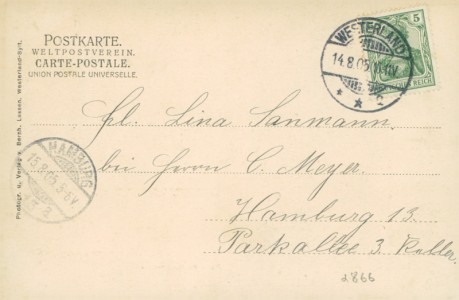 POSTKARTE.
WELTPOSTVEREIN.
CARTE-POSTALE.
UNION POSTALE UNIVERSELLE.
WESTERLAND
14.8.05
5
REICH
Frl. Lina Sanmann.
bei Herrn C. Meyer.
HAMBURG
15.8.05.5-6V
Hamburg 13.
Parkallee 3.
2866
Photogr. u. Verlag v. Bernh. Lassen, Westerland-Sylt.